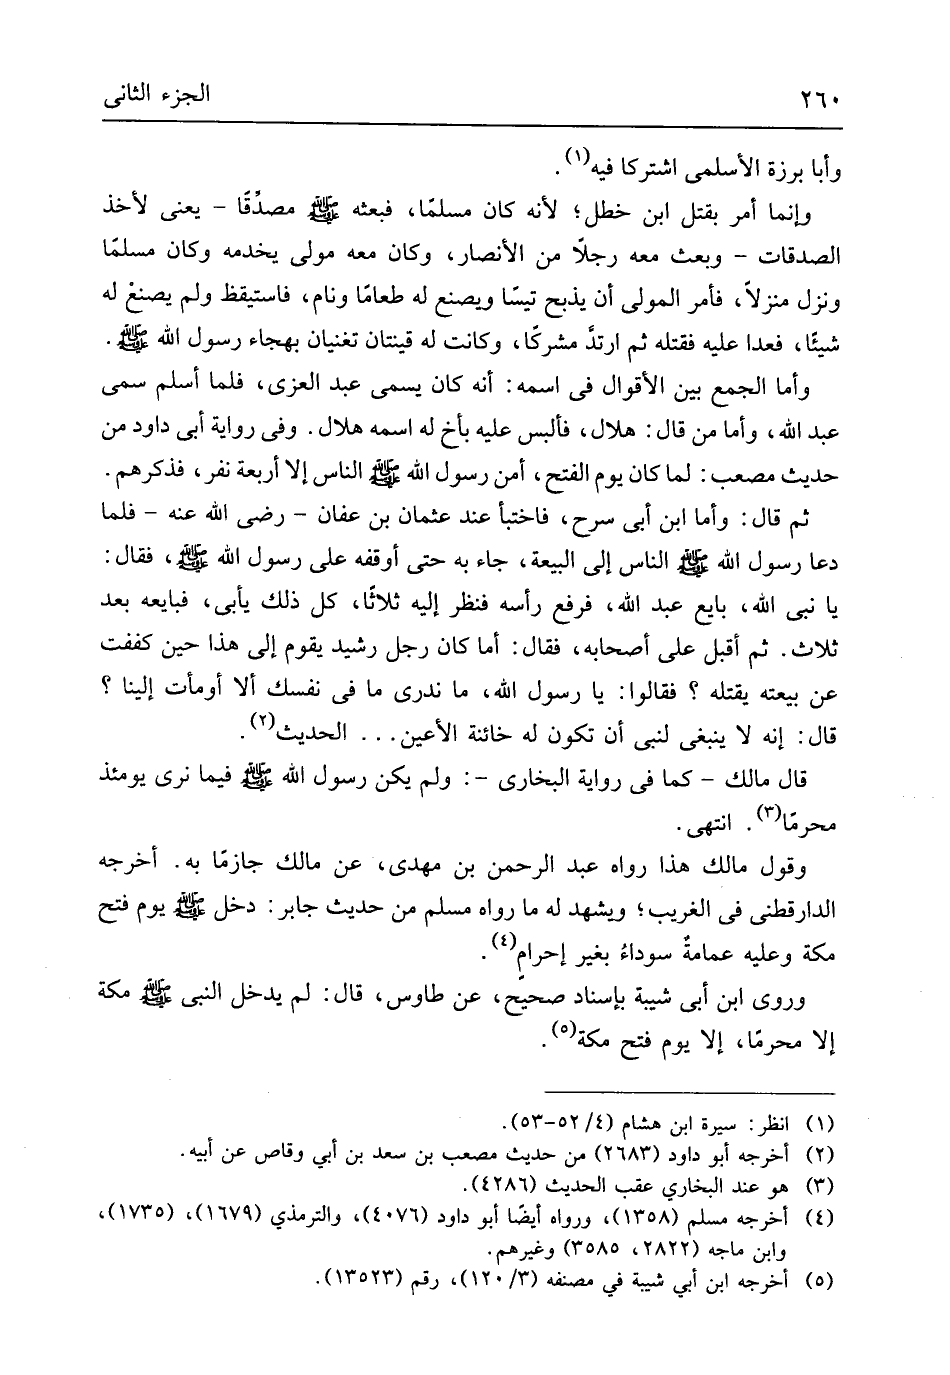 ٢٦٠ الجزء الثانى
وأبا برزة الأسلمى اشتركا فيه(١).
وإنما أمر بقتل ابن خطل؛ لأنه كان مسلمًا، فبعثه ﷺ مصدِّقًا - يعنى لأخذ
الصدقات - وبعث معه رجلاً من الأنصار، وكان معه مولى يخدمه وكان مسلمًا
ونزل منزلاً، فأمر المولى أن يذبح تيسًا ويصنع له طعامًا ونام، فاستيقظ ولم يصنعْ له
شيئًا، فعدا عليه فقتله ثم ارتدَّ مشركًا، وكانت له قينتان تغنيان بهجاء رسول الله ﷺ.
وأما الجمع بين الأقوال فى اسمه: أنه كان يسمى عبد العزى، فلما أسلم سمى
عبد الله، وأما من قال: هلال، فألبس عليه بأخ له اسمه هلال. وفى رواية أبى داود من
حديث مصعب: لما كان يوم الفتح، أمن رسول الله ﷺ الناس إلا أربعة نفر، فذكرهم.
ثم قال: وأما ابن أبى سرح، فاختبأ عند عثمان بن عفان - رضى الله عنه - فلما
دعا رسول الله ﷺ الناس إلى البيعة، جاء به حتى أوقفه على رسول الله ﷺ، فقال:
يا نبى الله، بايع عبد الله، فرفع رأسه فنظر إليه ثلاثًا، كل ذلك يأبى، فبايعه بعد
ثلاث. ثم أقبل على أصحابه، فقال: أما كان رجل رشيد يقوم إلى هذا حين كففت
عن بيعته يقتله ؟ فقالوا: يا رسول الله، ما ندرى ما فى نفسك ألا أومأت إلينا ؟
قال: إنه لا ينبغى لنبى أن تكون له خائنة الأعين... الحديث(٢).
قال مالك - كما فى رواية البخارى -: ولم يكن رسول الله ﷺ فيما نرى يومئذ
محرمًا(٣). انتهى.
وقول مالك هذا رواه عبد الرحمن بن مهدى، عن مالك جازمًا به. أخرجه
الدارقطنى فى الغريب؛ ويشهد له ما رواه مسلم من حديث جابر: دخل ﷺ يوم فتح
مكة وعليه عمامةٌ سوداءُ بغير إحرامٍ(٤).
وروى ابن أبى شيبة بإسناد صحيح، عن طاوس، قال: لم يدخل النبى ﷺ مكة
إلا محرمًا، إلا يوم فتح مكة(٥).
(١) انظر: سيرة ابن هشام (٤/ ٥٢-٥٣).
(٢) أخرجه أبو داود (٢٦٨٣) من حديث مصعب بن سعد بن أبي وقاص عن أبيه.
(٣) هو عند البخاري عقب الحديث (٤٢٨٦).
(٤) أخرجه مسلم (١٣٥٨)، ورواه أيضًا أبو داود (٤٠٧٦)، والترمذي (١٦٧٩)، (١٧٣٥)،
وابن ماجه (٢٨٢٢، ٣٥٨٥) وغيرهم.
(٥) أخرجه ابن أبي شيبة في مصنفه (٣/ ١٢٠)، رقم (١٣٥٢٣).